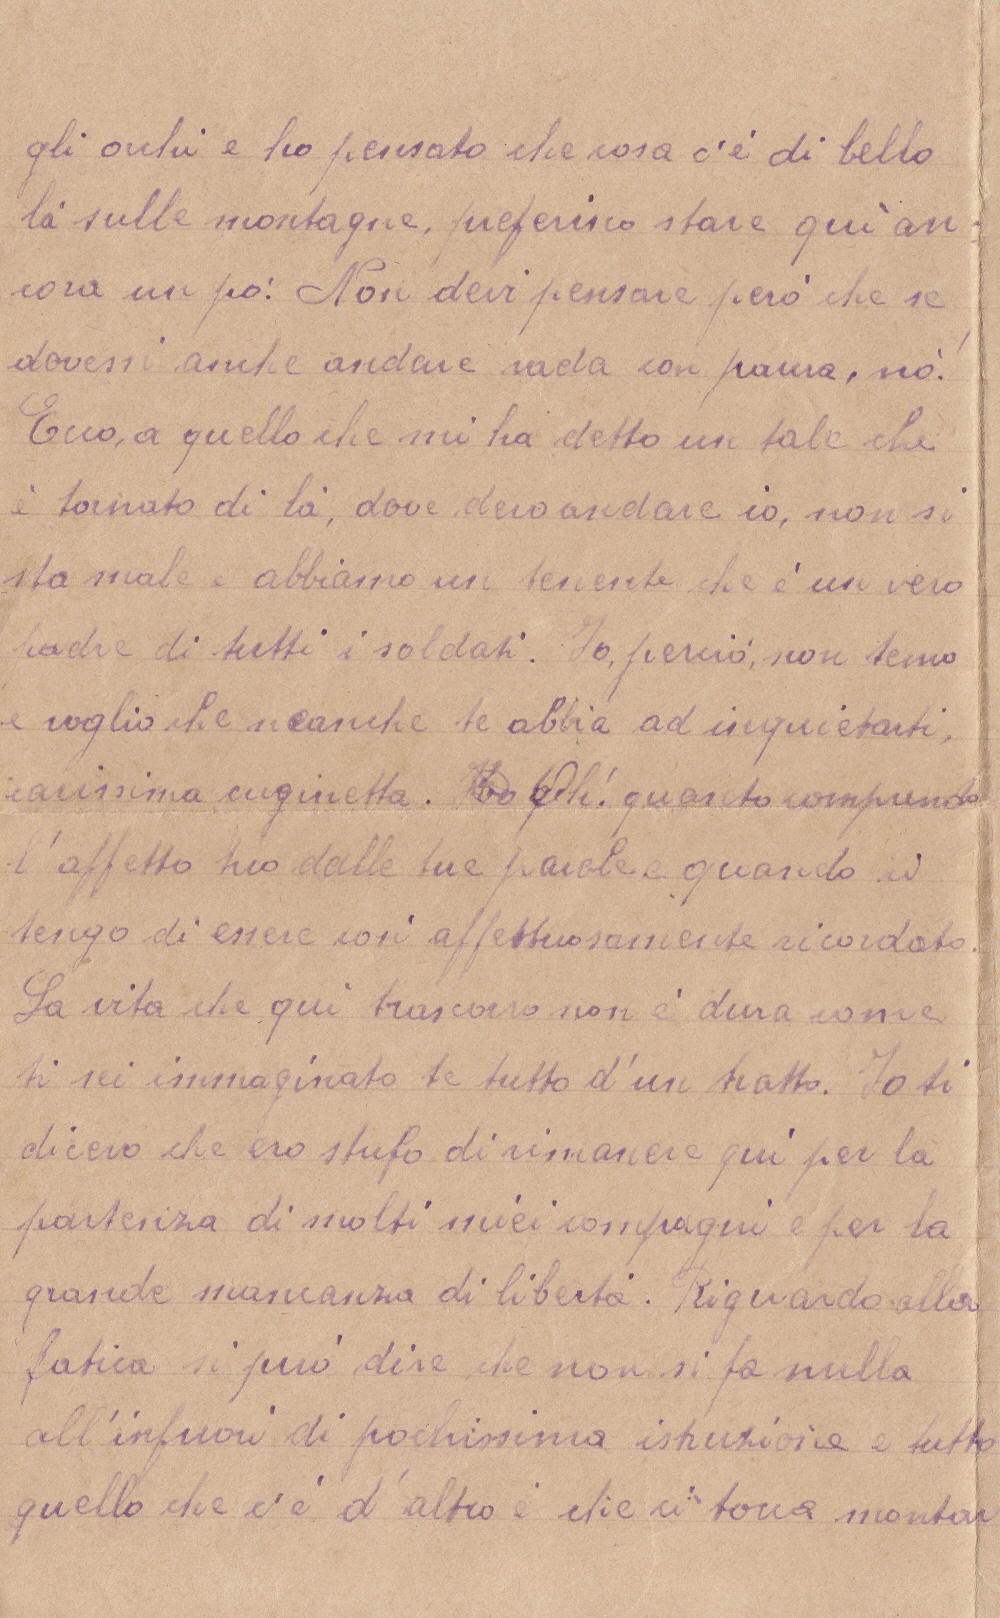 gli occhi e ho pensato che cosa c'é di bello
lá sulle montagne, preferisco stare qui an=
cora un po'. Non devi pensare peró che se
dovessi anche andare vada con paura, nó!
Ecco, a quello che mi ha detto un tale che
é tornato di lá, dove devo andare io, non si
sta male e abbiamo un tenente che é un vero
padre di tutti i soldati. Io, perció, non temo
e voglio che neanche te abbia ad inquietarti,
carissima cuginetta. Oh! quanto comprendo
l'affetto tuo dalle tue parole e quando ci
tengo di essere cosí affettuosamente ricordato.
La vita che qui trascorro non é dura come
ti sei immaginato te tutto d'un tratto. Io ti
dicevo che ero stufo di rimanere qui per la
partenza di molti miei compagni e per la
grande mancanza di libertá. Riguardo alla
fatica si puó dire che non si fa nulla
all'infuori di pochissima istruzione e tutto
quello che c'é d'altro é che ci tocca montar